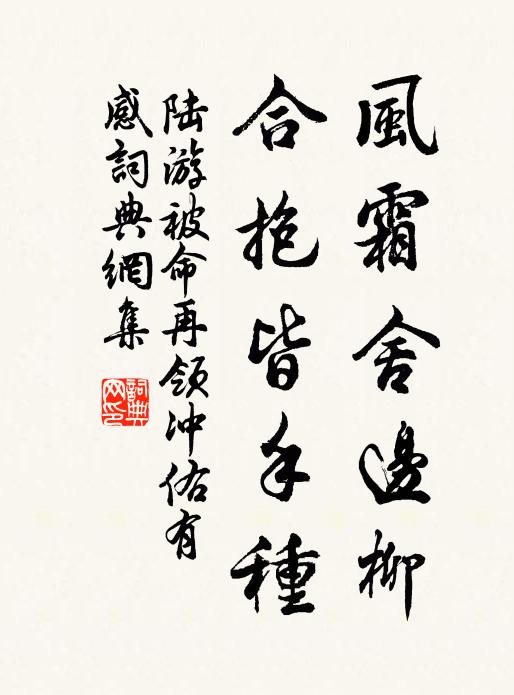 風霜舍邊柳
合抱皆手種
陆游被命再领冲佑有
感詞典網集
詞典網印